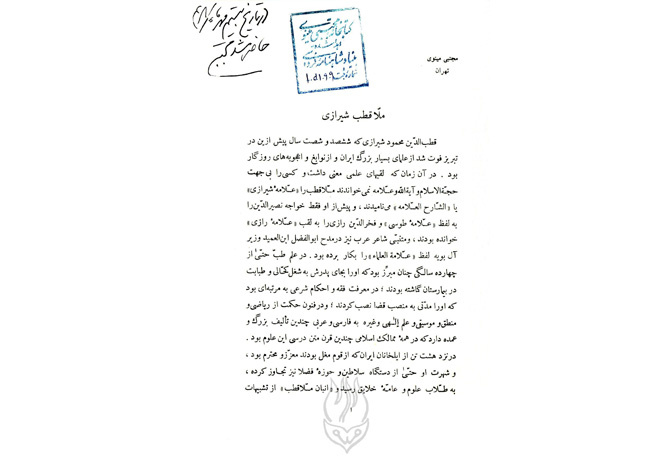 در تاریخ بیستم
حاضر شد
کتابخانه مجتبی مینوی
اهداء شده به
بنیاد شاهنامه فردوسی
مجتبی مینوی
تهران
ملّا قطب شیرازی
قطب‌الدّین محمود شیرازی که ششصد و شصت سال پیش ازین در
تبریز فوت شد از علمای بسیار بزرگ ایران و از نوابغ و اعجوبه‌های روزگار
بود . در آن زمان که لقبهای علمی معنی داشت و کسی را بی جهت
حجّة الاسلام و آیة اللّه و علّامه نمی خواندند ملّا قطب را «علّامهٔ شیرازی»
یا «الشّارح العلّامه» می‌نامیدند ، و پیش از او فقط خواجه نصیرالدّین را
به لفظ «علّامهٔ طوسی» و فخرالدّین رازی را به لقب «علّامهٔ رازی»
خوانده بودند ، و متنبّی شاعر عرب نیز در مدح ابوالفضل ابن العمید وزیر
آل بویه لفظ «علّامة العلماء» را بکار برده بود . در علم طبّ حتّیٰ از
چهارده سالگی چنان مبرّز بود که او را بجای پدرش به شغل کحّالی و طبابت
در بیمارستان گماشته بودند ؛ در معرفت فقه و احکام شرعی به مرتبه‌ای بود
که او را مدّتی به منصب قضا نصب کردند ؛ و در فنون حکمت از ریاضی و
منطق و موسیقی و علم إلٰهی وغیره به فارسی و عربی چندین تألیف بزرگ و
عمده دارد که در همهٔ ممالک اسلامی چندین قرن متن درسی این علوم بود .
در نزد هشت تن از ایلخانان ایران که از قوم مغل بودند معزّز و محترم بود ،
و شهرت او حتّیٰ از دستگاه سلاطین و حوزهٔ فضلا نیز تجاوز کرده ،
به طلّاب علوم و عامّهٔ خلایق رسید و «انبان ملّا قطب» از تشبیهات
۱